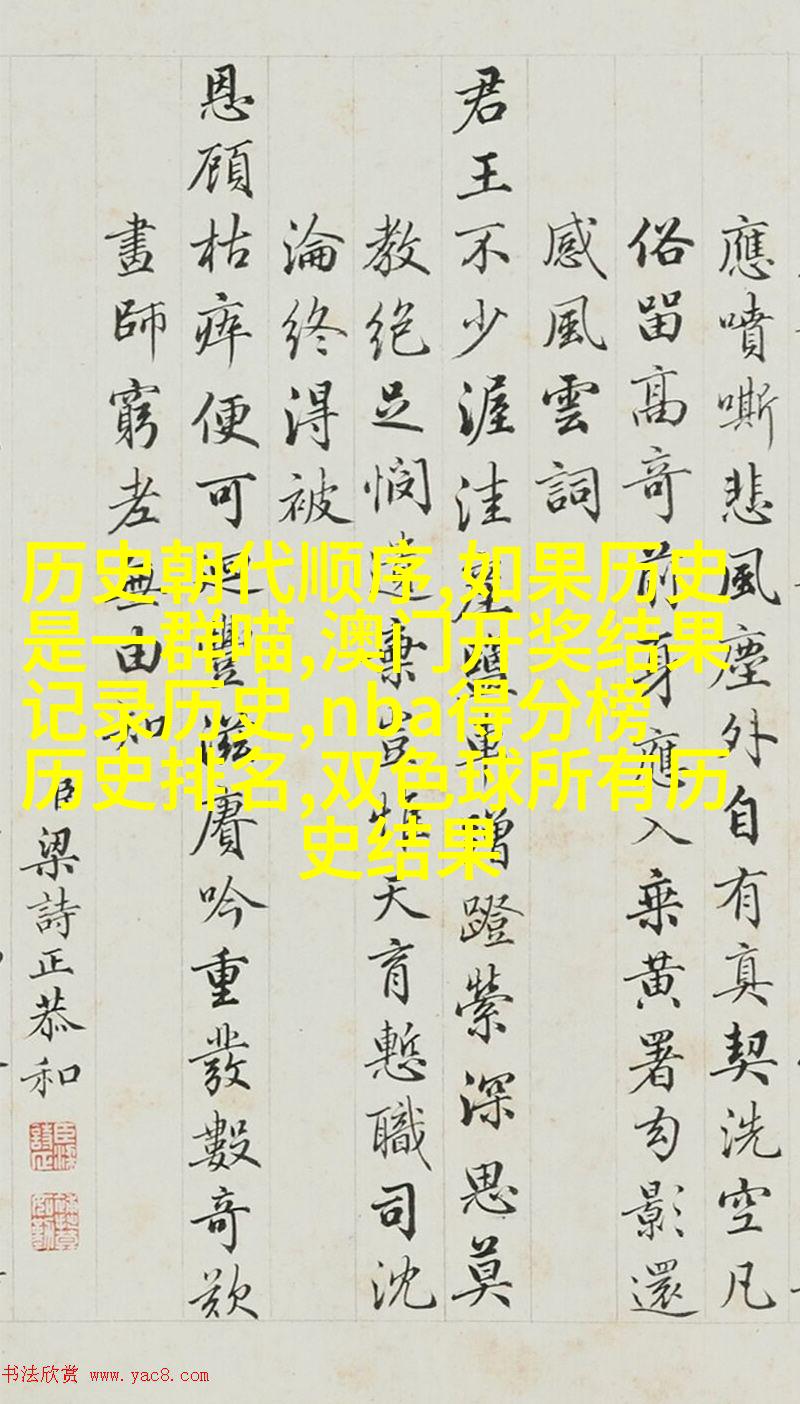 應噴嘶悲風塵外自有真契洗空凡
俗畱高奇前身應入乗黃署勾影還
感風雲詞
君王不少渥洼產蹭蹬縈深思莫
教絕足憫遺棄天育慙職司沈
淪終得被
恩顧枯瘁便可豐吟重發數奇歎
畫師窮老無由知
臣梁詩正恭和
历史朝代顺序,如果历史
是一群喵,澳门开奖结果
记录历史,nba得分榜
历史排名,双色球所有历
史结果
书法欣赏 www.yac8.com